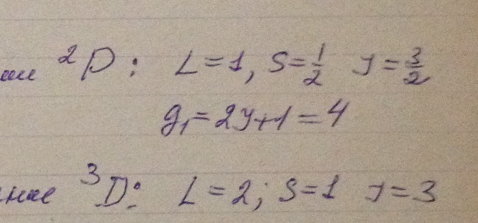 ²P: L=1, S=1/2 J=3/2
g₁=2J+1=4
³D: L=2; S=1 J=3